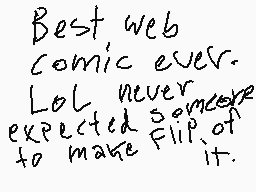 Best web
comic ever.
LoL never
expected someone
to make flip of
it.